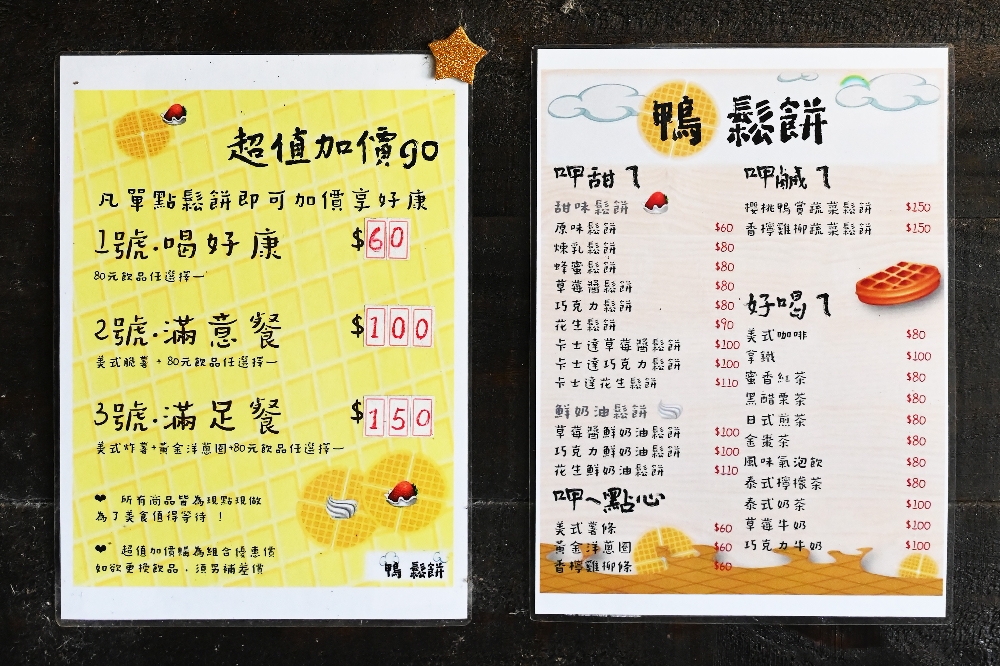 超值加價go
凡單點鬆餅即可加價享好康
1號·喝好康 $60
80元飲品任選擇一
2號·滿意餐 $100
美式脆薯 + 80元飲品任選擇一
3號·滿足餐 $150
美式炸薯+黃金洋蔥圈+80元飲品任選擇一
❤ 所有商品皆為現點現做
為了美食值得等待！
❤ 超值加價購為組合優惠價
如欲更換飲品，須另補差價
鴨 鬆餅
鴨 鬆餅
呷甜ㄋ
甜味鬆餅
原味鬆餅 $60
煉乳鬆餅 $80
蜂蜜鬆餅 $80
草莓醬鬆餅 $80
巧克力鬆餅 $80
花生鬆餅 $90
卡士達草莓醬鬆餅 $100
卡士達巧克力鬆餅 $100
卡士達花生鬆餅 $110
鮮奶油鬆餅
草莓醬鮮奶油鬆餅 $100
巧克力鮮奶油鬆餅 $100
花生鮮奶油鬆餅 $110
呷ㄟ點心
美式薯條 $60
黃金洋蔥圈 $60
香檸雞柳條 $60
呷鹹ㄋ
櫻桃鴨賞蔬菜鬆餅 $150
香檸雞柳蔬菜鬆餅 $150
好喝ㄋ
美式咖啡 $80
拿鐵 $100
蜜香紅茶 $80
黑醋栗茶 $80
日式煎茶 $80
金棗茶 $80
風味氣泡飲 $80
泰式檸檬茶 $80
泰式奶茶 $100
草莓牛奶 $100
巧克力牛奶 $100